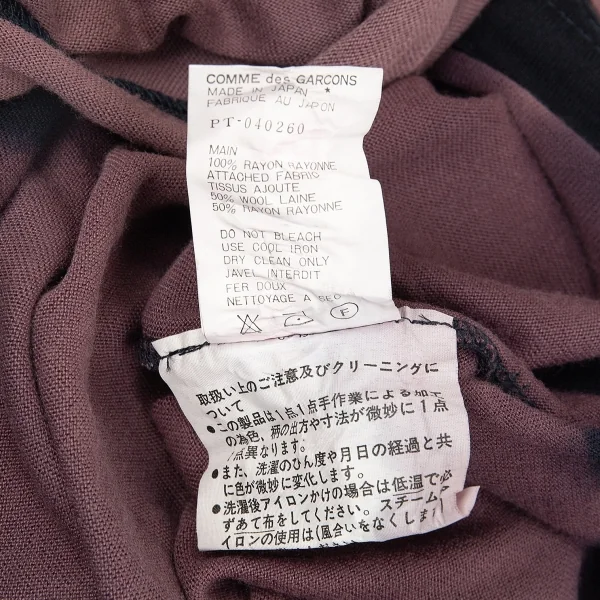 COMME des GARCONS
MADE IN JAPAN *
FABRIQUE AU JAPON
PT-040260
MAIN
100% RAYON RAYONNE
ATTACHED FABRIC
TISSUS AJOUTE
50% WOOL LAINE
50% RAYON RAYONNE
DO NOT BLEACH
USE COOL IRON
DRY CLEAN ONLY
JAVEL INTERDIT
FER DOUX
NETTOYAGE A SEC
F
取扱い上のご注意及びクリーニングに
ついて
●この製品は1点1点手作業による加工
の為色、柄の出方や寸法が微妙に1点
1点異なります。
●また、洗濯のひん度や月日の経過と共
に色が微妙に変化します。
●洗濯後アイロンかけの場合は低温で必
ずあて布をしてください。スチームア
イロンの使用は(風合いをなくしま